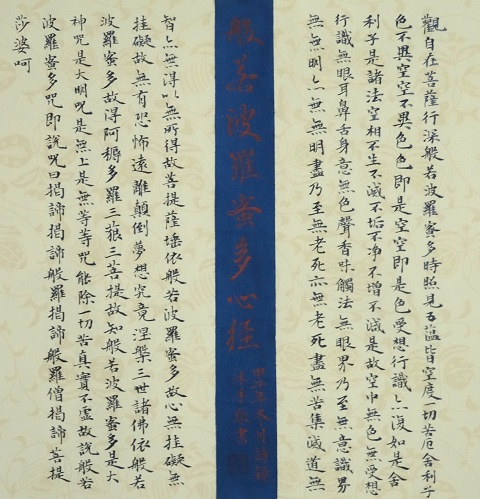 觀自在菩薩行深般若波羅蜜多時照見五蘊皆空度一切苦厄舍利子
色不異空空不異色色即是空空即是色受想行識亦復如是舍
利子是諸法空相不生不滅不垢不净不增不減是故空中無色無受想
行識無眼耳鼻舌身意無色聲香味觸法無眼界乃至無意識界
無無明亦無無明盡乃至無老死亦無老死盡無苦集滅道無
般若波羅蜜多心經
年冬月
書
智亦無得以無所得故菩提薩埵依般若波羅蜜多故心無挂礙無
挂礙故無有恐怖遠離顛倒夢想究竟涅槃三世諸佛依般若
波羅蜜多故得阿耨多羅三藐三菩提故知般若波羅蜜多是大
神咒是大明咒是無上是無等等咒能除一切苦真實不虛故說般若
波羅蜜多咒即說咒曰揭諦揭諦般羅揭諦般羅僧揭諦菩提
莎婆呵